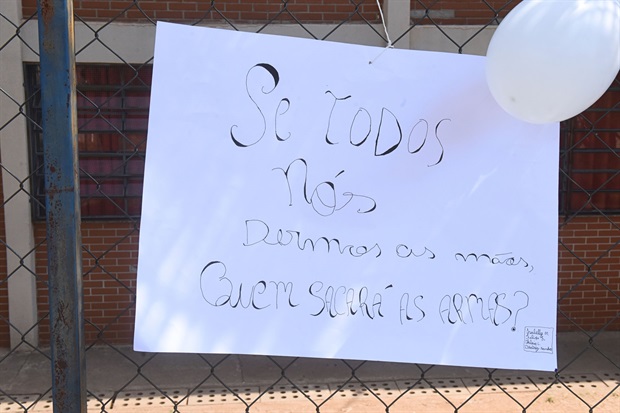 Se TODOS
Nós
Dermos as mãos,
Quem SACARÁ AS ARMAS?